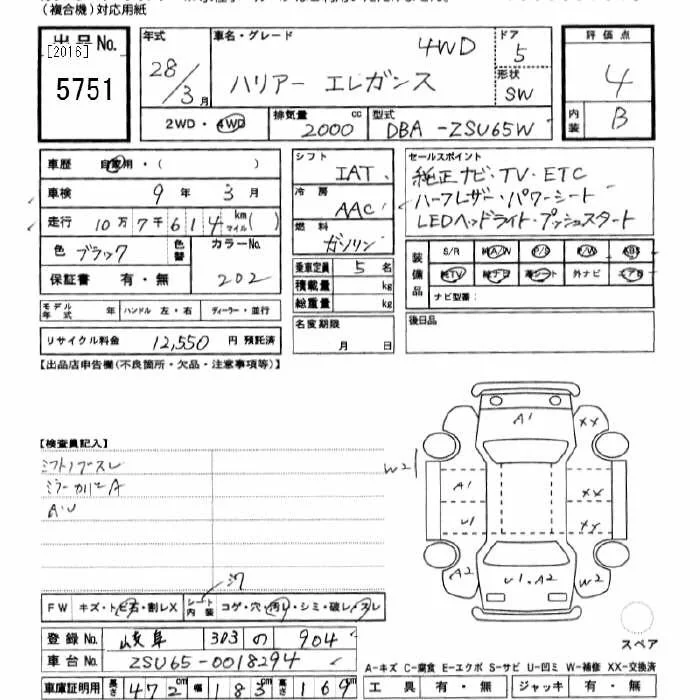 (複合機)対応用紙
出品No.
[2016]
5751
年式
28/3月
車名・グレード
4WD
ハリアー エレガンス
ドア
5
形状
SW
評価点
4
内装
B
2WD・4WD
排気量
2000
cc
型式
DBA-ZSU65W
車歴
自家用・( )
車検
9年3月
走行
10万7千614km マイル( )
色
ブラック
色替
カラーNo.
202
保証書 有・無
シフト
IAT
冷房
AAC
燃料
ガソリン
乗車定員 5名
積載量 kg
総重量 kg
セールスポイント
純正ナビ・TV・ETC
ハーフレザー・パワーシート
LEDヘッドライト・プッシュスタート
装備品
S/R
純A/W
P/S
P/W
ABS
純TV
純ナビ
革シート
外ナビ
エアB
ナビ型番:
モデル年式 年
ハンドル 左・右
ディーラー・並行
リサイクル料金 12,550円 預託済
名変期限
月 日
後日品
【出品店申告欄(不良箇所・欠品・注意事項等)】
【検査員記入】
A・U
A1
XX
W2
A1
XX
U1
XY
A2
U1.A2
W2
スペア
FW
キズ・トビ石・割レX
シート内装
コゲ・穴・汚レ・シミ・破レ・スレ
登録No.
岐阜 303 の 904
車台No.
ZSU65-0018294
車庫証明用
長さ 472cm 幅 183cm 高さ 169cm
A-キズ C-腐食 E-エクボ S-サビ U-凹ミ W-補修 XX-交換済
工具 有・無
ジャッキ 有・無